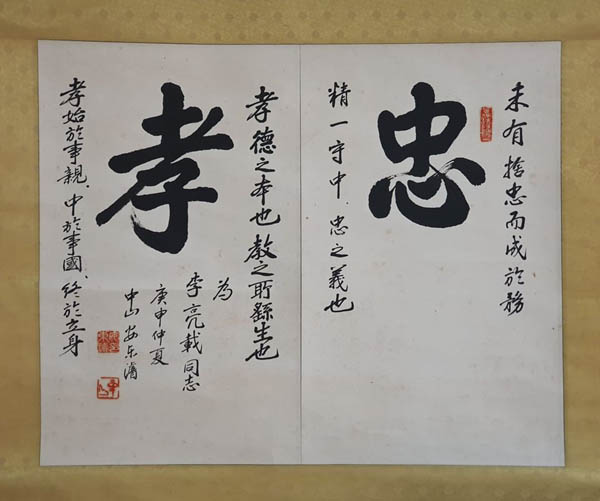 未有捨忠而成於務
忠
精一守中、忠之義也
孝德之本也教之所繇生也
孝
孝始於事親、中於事國、終於立身
為
李亮載同志
庚申仲夏
中山安东濬